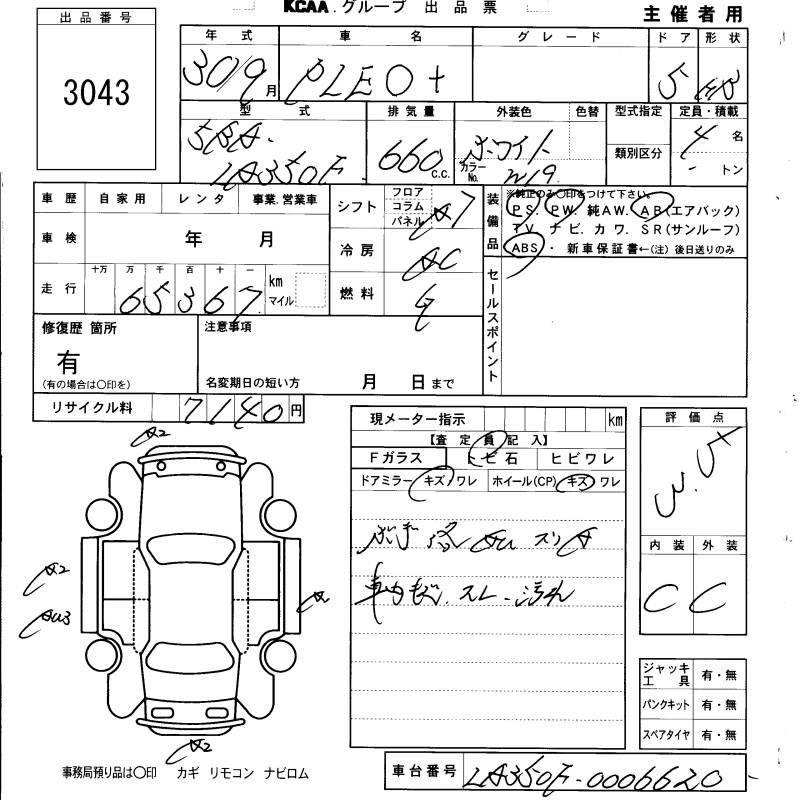 KCAA.グループ 出品票
主催者用
出品番号
3043
年式 車名 グレード ドア 形状
30/9月 PLEO+ 5 HB
型式 排気量 外装色 色替 型式指定 定員・積載
5BA- 660c.c. ホワイト 類別区分 4名
LA350F カラーNo. W19 - トン
車歴 自家用 レンタ 事業.営業車
車検 年 月
走行 十万 万 千 百 十 一
65367 km マイル
シフト フロア コラム パネル A7
冷房 AC
燃料 G
装備品
※純正のみ〇印をつけて下さい。
PS. PW. 純AW. AB(エアバック)
TV. ナビ. カワ. SR(サンルーフ)
ABS ・ 新車保証書←(注)後日送りのみ
セールスポイント
修復歴 箇所
有
(有の場合は〇印を)
注意事項
名変期日の短い方 月 日まで
リサイクル料 7140円
現メーター指示 km
【査定員記入】
Fガラス トビ石 ヒビワレ
ドアミラー キズ/ワレ ホイール(CP) キズ/ワレ
車内 スレ 汚れ
評価点
3.5
内装 外装
C C
A2
A2
AU3
A
A2
ジャッキ工具 有・無
パンクキット 有・無
スペアタイヤ 有・無
事務局預り品は〇印 カギ リモコン ナビロム
車台番号 LA350F-0006620